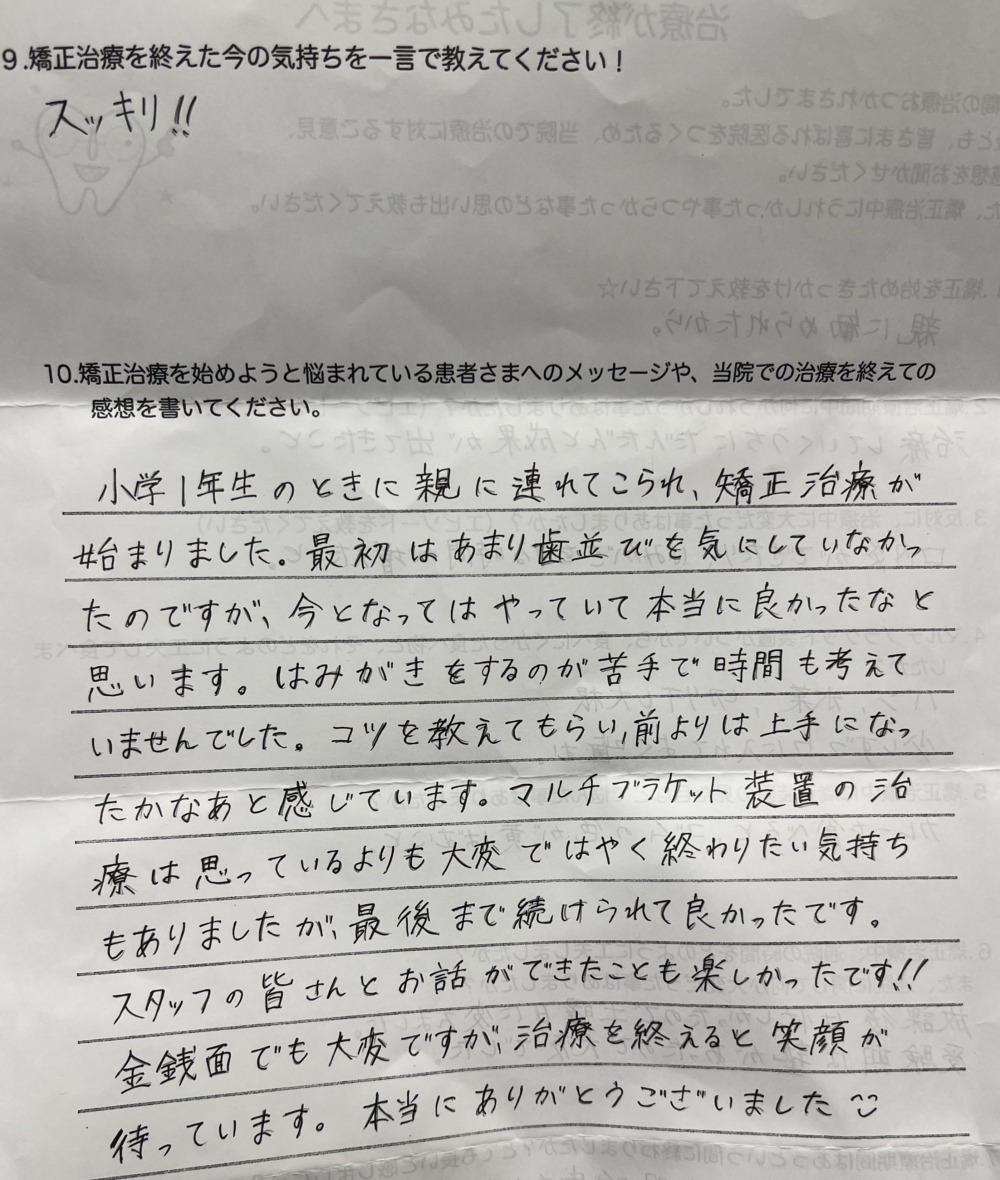 9.矯正治療を終えた今の気持ちを一言で教えてください！
スッキリ!!
10.矯正治療を始めようと悩まれている患者さまへのメッセージや、当院での治療を終えての
感想を書いてください。
小学1年生のときに親に連れてこられ、矯正治療が
始まりました。最初はあまり歯並びを気にしていなかっ
たのですが、今となってはやっていて本当に良かったなと
思います。はみがきをするのが苦手で時間も考えて
いませんでした。コツを教えてもらい、前よりは上手になっ
たかなあと感じています。マルチブラケット装置の治
療は思っているよりも大変ではやく終わりたい気持ち
もありましたが、最後まで続けられて良かったです。
スタッフの皆さんとお話ができたことも楽しかったです!!
金銭面でも大変ですが、治療を終えると笑顔が
待っています。本当にありがとうございました